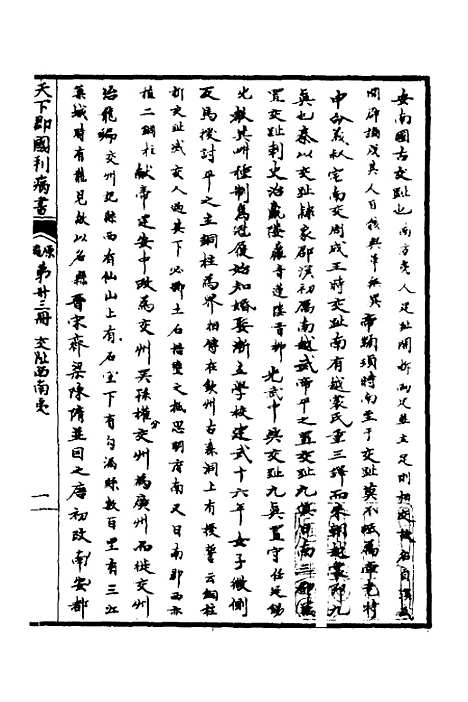 安南國古交趾也南方夷人足趾開析兩足並立足則相交故名自漢武
開郡議處其人自後與華無異帝顓頊時南至于交趾莫不砥屬帝堯時
中命羲叔宅南交周成王時交趾南有越裳氏重三譯而來朝越裳即九
真也秦以交趾隸象郡漢初屬南越武帝平之置交趾九真日南三郡
置交趾刺史治羸𨻻光武中興交趾九真置守任延錫
光教其耕種制為冠履始知婚娶漸立學校建武十六年女子徵側
反馬援討平之立銅柱為界相傳在欽州古森洞上有援誓云銅柱
折交趾滅交人過其下必擲土石培壅之抵思明府南又日南郡西亦
植二銅柱獻帝建安中改為交州吳孫權分交州為廣州而徙交州
治龍編交州記縣西有仙山上有石室下有勾漏縣數百里有三江
築城時有龍見故以名縣晉宋齊梁陳隋並因之唐初改南安都
天下郡國利病書
原編第廿三冊交阯西南夷
一